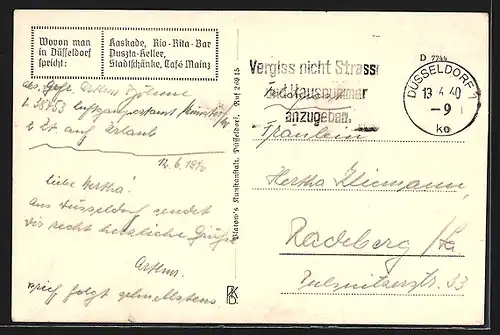 Wovon man
in Düsseldorf
spricht:
Kaskade, Rio-Rita-Bar
Puszta-Keller,
Stadtschänke, Café Mainz
abs. Gefr. Arthur
L 28753 Luftgaupostamt Münster/W
z. Zt auf Urlaub
12.6.1940
Liebe Hertha!
Aus Düsseldorf sendet
dir recht herzliche Grüße
Arthur.
Brief folgt schnellstens.
Ruf 26915
Kunstanstalt, Düsseldorf,
D 2244
Vergiss nicht Strasse
und Hausnummer
anzugeben.
DÜSSELDORF 1
13 4 40
-9
ko
Fräulein
Hertha Kliemann,
Radeberg/Sa
Pulsnitzerstr. 33